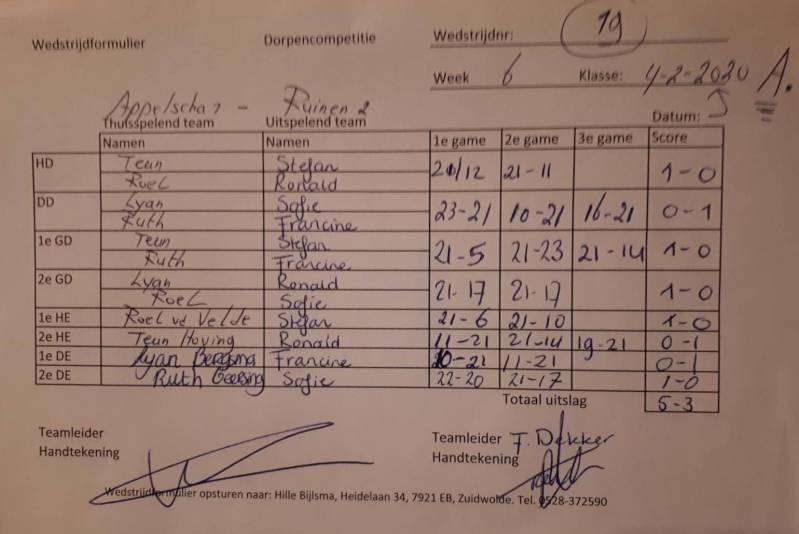 Wedstrijdformulier Dorpencompetitie Wedstrijdnr: 19
Week 6 Klasse: 4-2-2020 A.
Appelscha 1 - Ruinen 2
Thuisspelend team Uitspelend team Datum:
Namen Namen 1e game 2e game 3e game Score
HD Teun Stefan 21/12 21-11 1-0
Roel Ronald
DD Lyan Sofie 23-21 10-21 16-21 0-1
Ruth Francine
1e GD Teun Stefan 21-5 21-23 21-14 1-0
Ruth Francine
2e GD Lyan Ronald 21-17 21-17 1-0
Roel Sofie
1e HE Roel vd Velde Stefan 21-6 21-10 1-0
2e HE Teun Hoving Ronald 11-21 21-14 19-21 0-1
1e DE Lyan Bergsma Francine 10-21 11-21 0-1
2e DE Ruth Geersing Sofie 22-20 21-17 1-0
Totaal uitslag 5-3
Teamleider Teamleider F. Dekker
Handtekening Handtekening
Wedstrijdformulier opsturen naar: Hille Bijlsma, Heidelaan 34, 7921 EB, Zuidwolde. Tel. 0528-372590